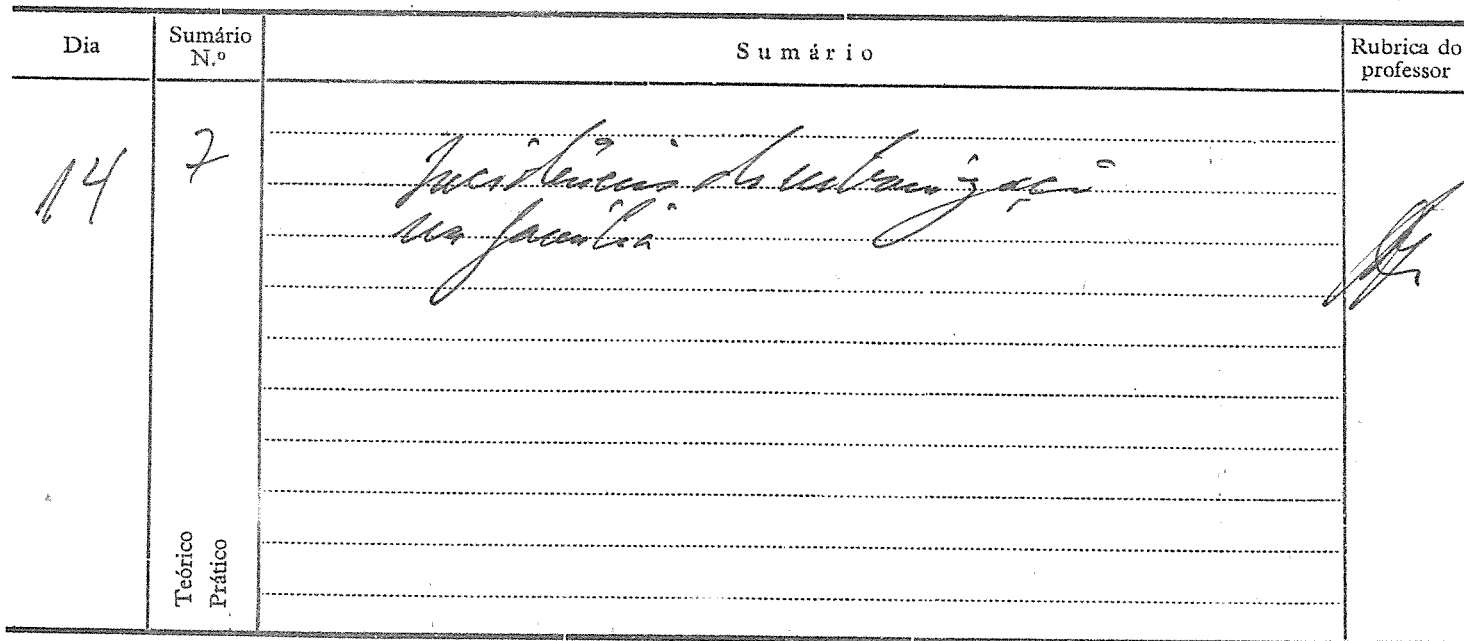 Dia
Sumário N.º
Sumário
Rubrica do professor
14
7
Incidência da urbanização
na família
Teórico
Prático